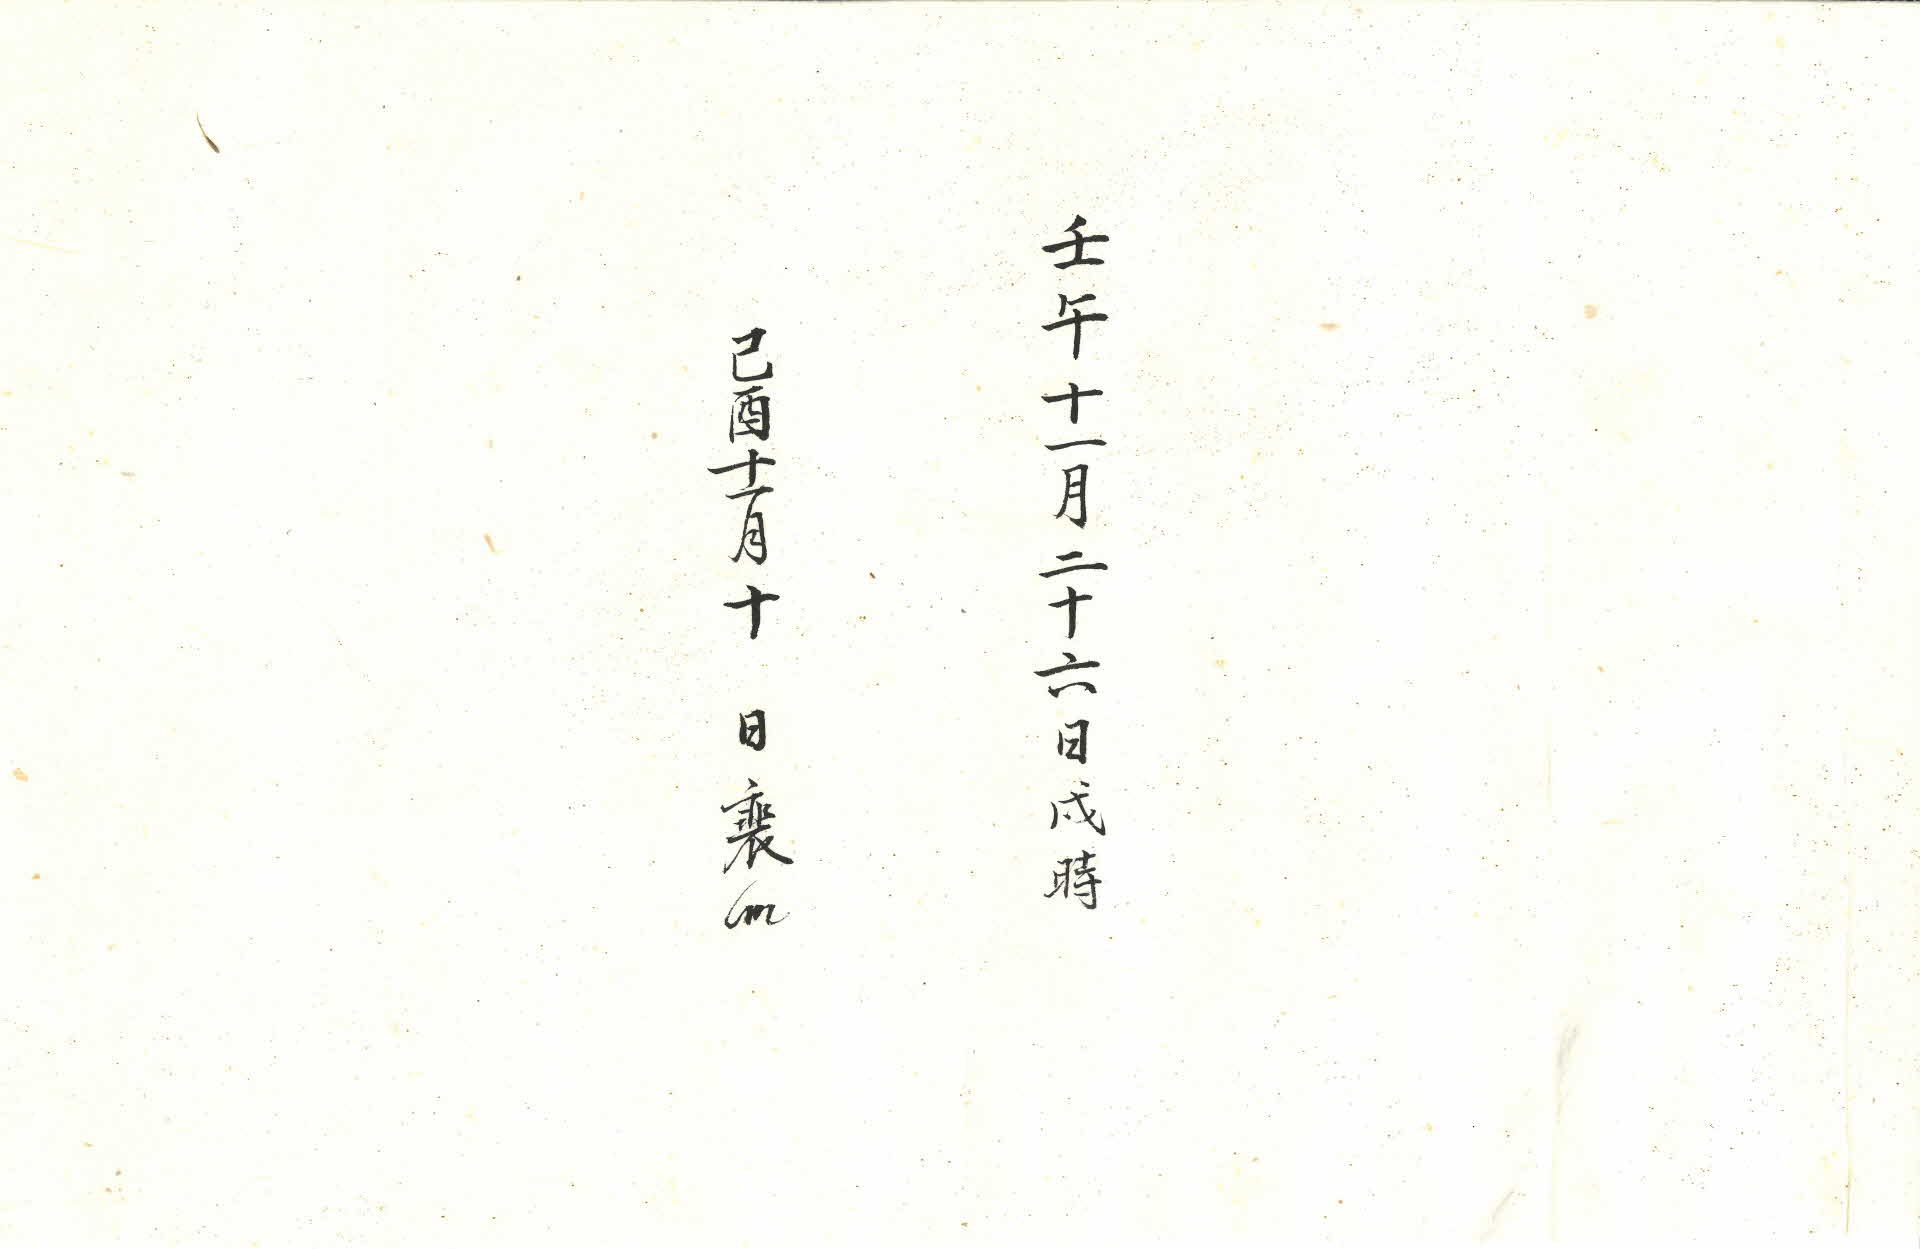 壬午十一月二十六日戌時
己酉十一月十日裵